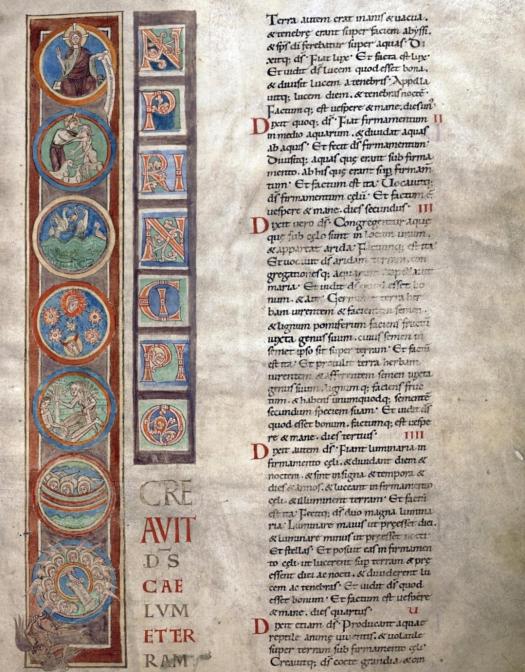 N
P
RI
N
CI
PI
O
CRE
AVIT
DS̄
CAE
LVM
ET TER
RAM
Terra autem erat inanis & uacua.
& tenebrę erant super faciem abyssi.
& sp̄s dī ferebatur super aquas. Di
xitq; dś. Fiat lux. Et facta est lux.
Et uidit dś lucem quod esset bona.
& diuisit lucem a tenebris. Appella
uitq; lucem diem. & tenebras noctē.
Factumq; est uespere & mane. dies un
II
Dixit quoq; dś. Fiat firmamentum
in medio aquarum. & diuidat aquas
ab aquis. Et fecit dś firmamentum.
Diuisitq; aquas quę erant sub firma
mento. ab his quę erant sup firmam
tum. Et factum est ita. Uocauitq;
dś firmamentum cęlū. Et factum ē
uespere & mane. dies secundus. III
Dixit uero dś. Congregentur aquę
quę sub cęlo sunt in locum unum.
& appareat arida. Factumq; est ita.
Et uocauit dś aridam terram. con
gregationesq; aquarum appellauit
maria. Et uidit dś quod esset bo
num. & ait. Germinet terra her
bam uirentem & facientem semen.
& lignum pomiferum faciens fructū
iuxta genus suum. cuius semen in
semet ipso sit super terram. Et factū
est ita. Et protulit terra herbam
uirentem & afferentem semen iuxta
genus suum. lignumq; faciens fruc
tum. & habens unumquodq; sementē
secundum speciem suam. Et uidit dś
quod esset bonum. factumq; est uespe
re & mane. dies tertius. IIII
Dixit autem dś. Fiant luminaria in
firmamento cęli. & diuidant diem &
noctem. & sint in signa & tempora &
dies & annos. & luceant in firmamento
cęli. & illuminent terram. Et factū
est ita. Fecitq; dś duo magna lumina
ria. Luminare maius ut pręesset diei.
& luminare minus ut pręesset nocti.
Et stellas. Et posuit eas in firmamen
to cęli. ut lucerent sup terram. & prę
essent diei ac nocti. & diuiderent lu
cem ac tenebras. Et uidit dś quod
esset bonum. Et factum est uespere
& mane. dies quartus. U
Dixit etiam dś. Producant aquae
reptile animę uiuentis. & uolatile
super terram sub firmamento cęli.
Creauitq; dś coete grandia. & om